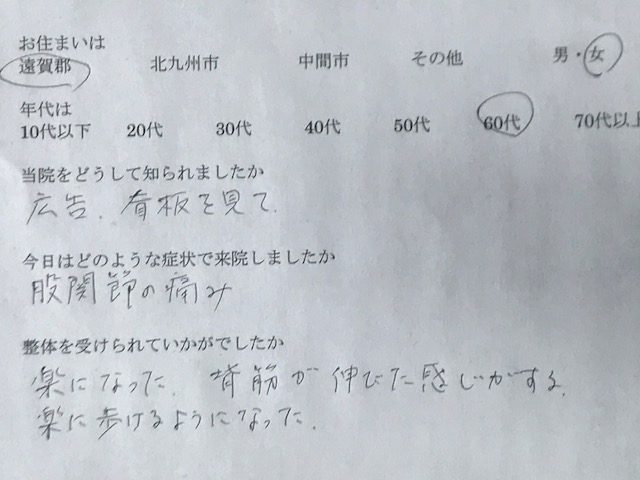 お住まいは
遠賀郡 北九州市 中間市 その他 男・女
年代は
10代以下 20代 30代 40代 50代 60代 70代以上
当院をどうして知られましたか
広告、看板を見て
今日はどのような症状で来院しましたか
股関節の痛み
整体を受けられていかがでしたか
楽になった、背筋が伸びた感じがする、
楽に歩けるようになった、